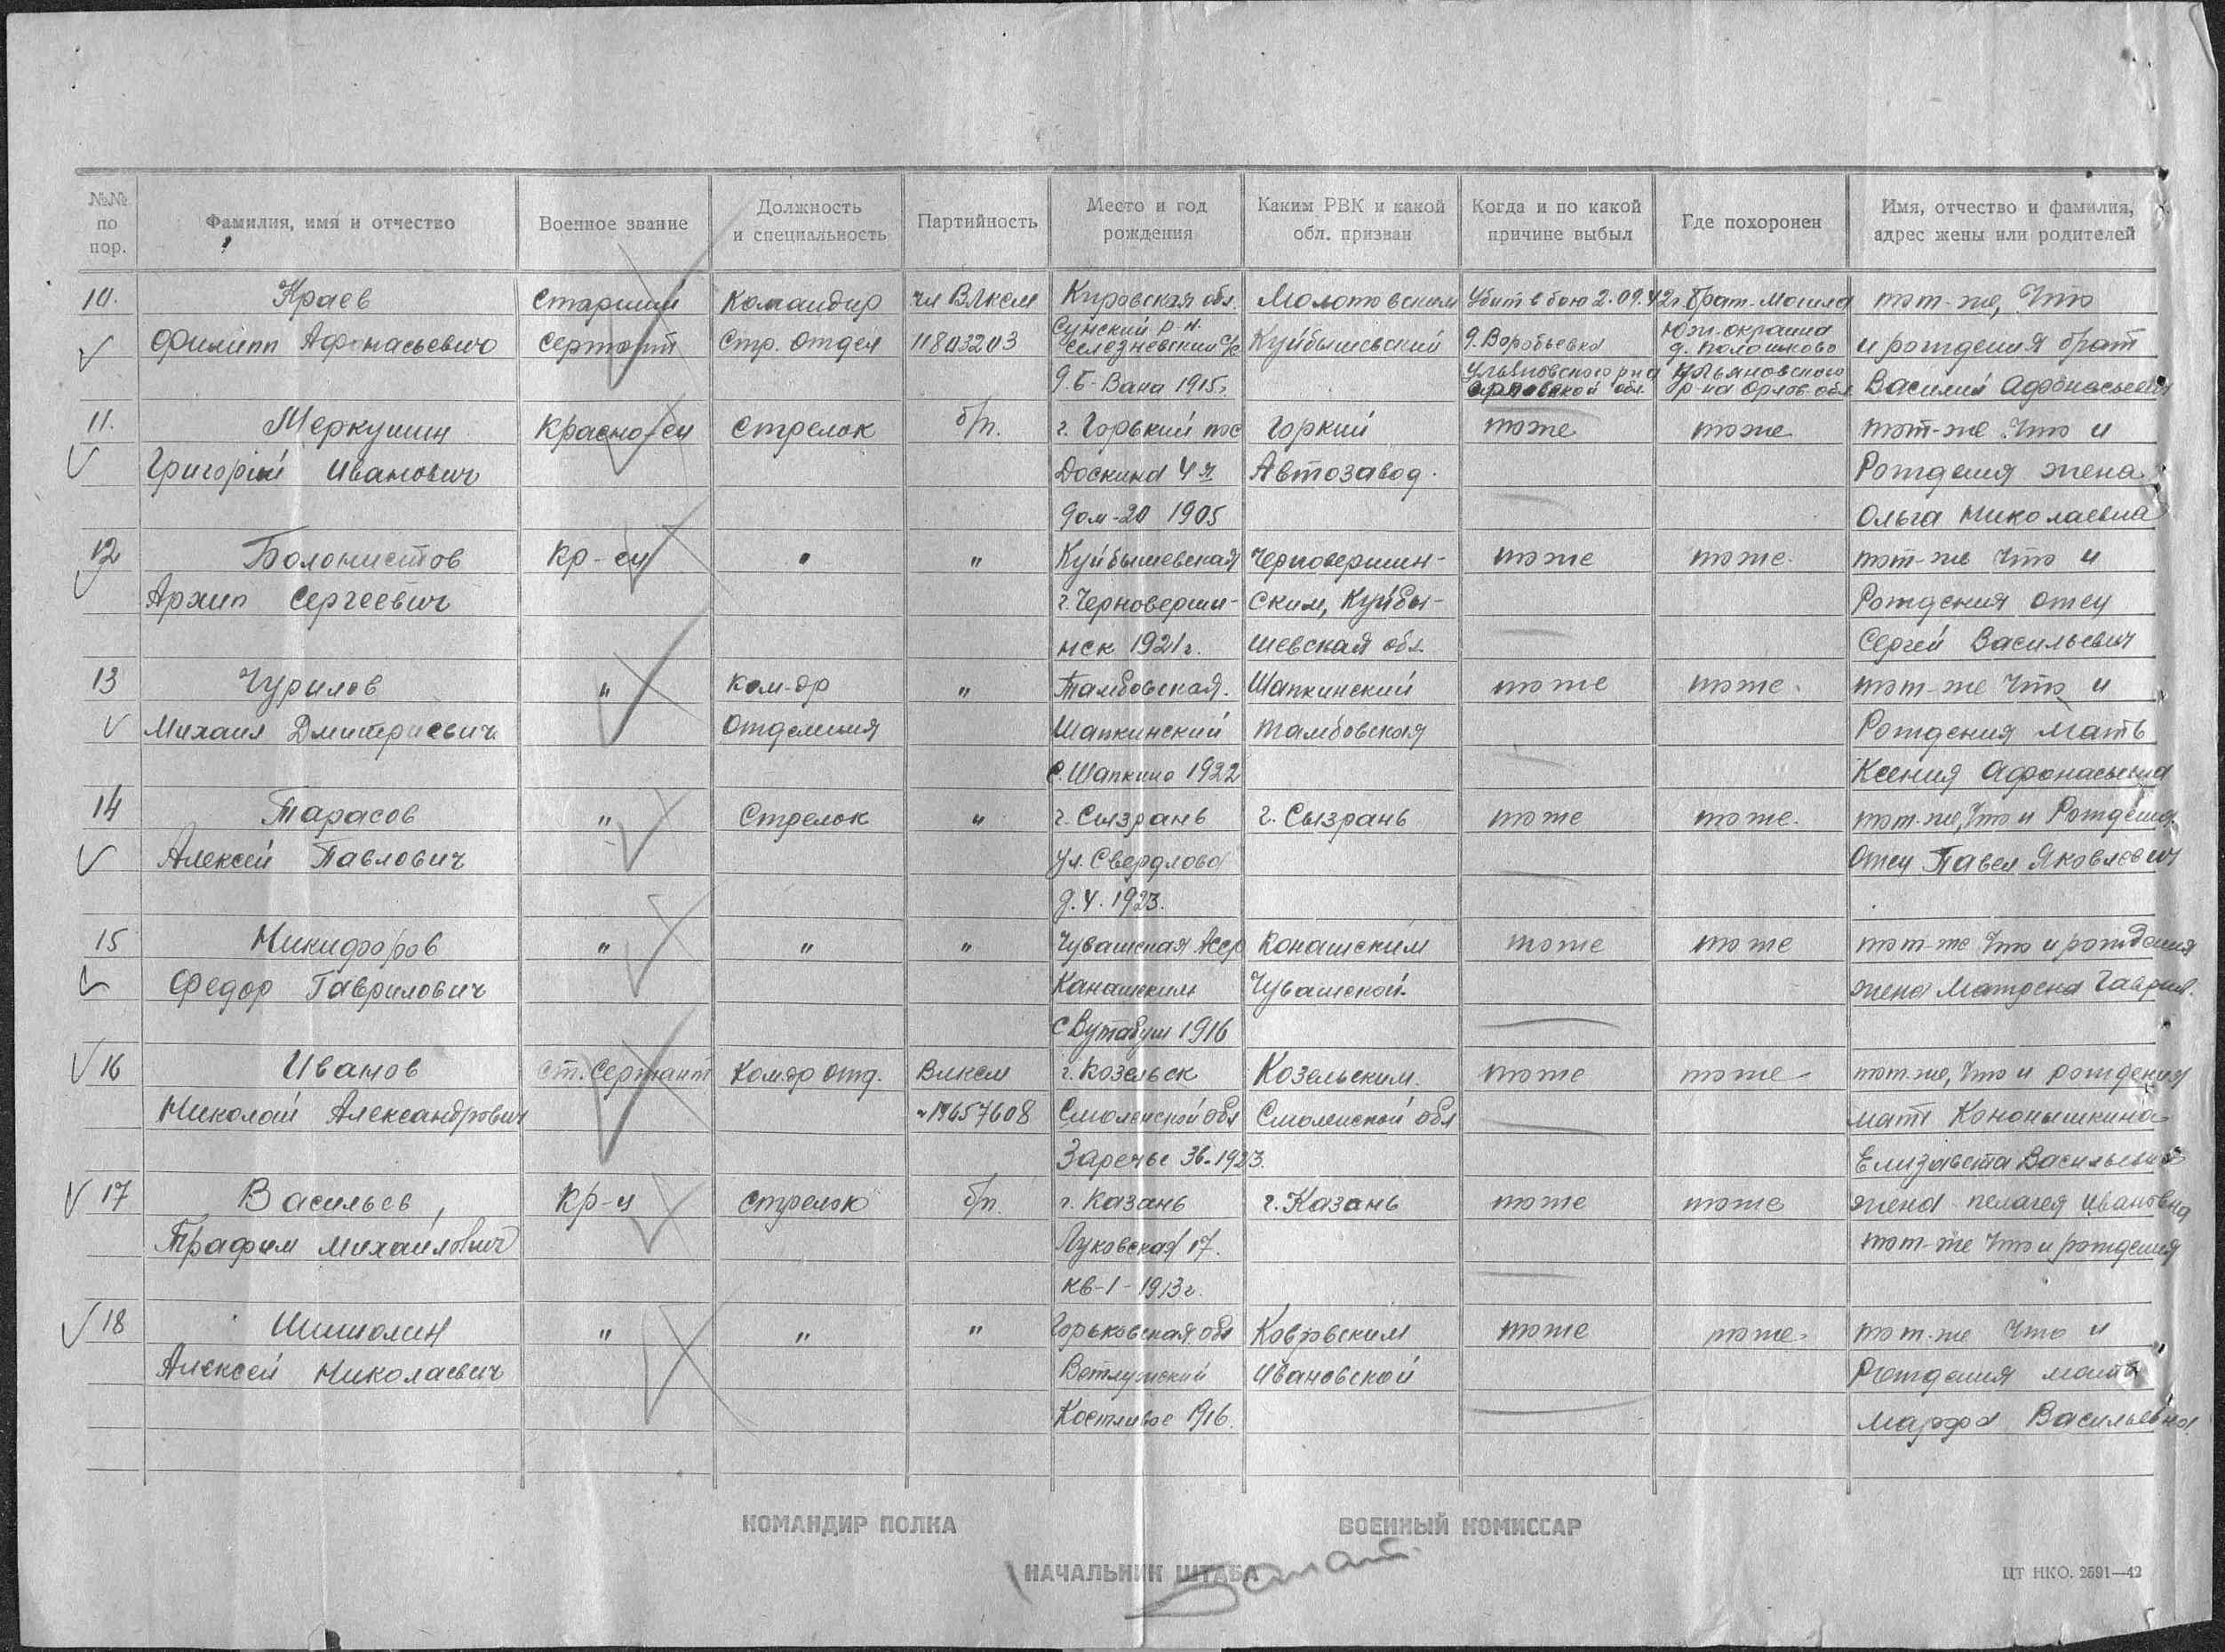 №№ по пор. Фамилия, имя и отчество Военное звание Должность и специальность Партийность Место и год рождения Каким РВК и какой обл. призван Когда и по какой причине выбыл Где похоронен Имя, отчество и фамилия, адрес жены или родителей
10. Краев Старший Командир чл ВЛКСМ Кировская обл. Молотовским Убит в бою 2.09.42г. Брат. Могила тот-же, Что
Филипп Афонасьевич Сержант Стр. Отдел 11803203 Сунский р-н. Селезневский с/с Куйбышевский д. Воробьевка Юж. окраина д. и рождения брат
д. Б-Вана 1915г. Ульяновского р-на Орловской обл. Ульяновского р-на Орлов. обл. Василий Афонасьевич
11. Меркушин Красно-ец Стрелок б/п. г. Горький пос Горкий тоже тоже тот-же Что и
Григорий Иванович Доскино 4я Автозавод. Рождения жена
дом-20 1905 Ольга Николаевна
12 Болонистов Кр-ец " " Куйбышевская Черновершин- тоже тоже. тот-же Что и
Архип Сергеевич г. Черноверши- ским, Куйбы- Рождения отец
нск 1921г. шевская обл. Сергей Васильевич
13 Чурилов " Ком-др " Тамбовская. Шапкинский тоже тоже. тот-же Что и
Михаил Дмитриевич Отделения Шапкинский Тамбовская Рождения Мать
с. Шапкино 1922 Ксения Афонасьевна
14 Тарасов " Стрелок " г. Сызрань г. Сызрань тоже тоже. тот-же, Что и Рождения
Алексей Павлович ул. Свердлова Отец Павел Яковлевич
д. 4. 1923.
15 Никифоров " " " Чувашская Асср Конашским тоже тоже тот-же Что и рождения
Федор Гаврилович Канашским Чувашской. жена Матрена Гаврил.
с 1916
16 Иванов Ст. Сержант Ком.др отд. Влксм г. Козельск Козельским. тоже тоже тот-же, Что и рождения
Николай Александрович 19657608 Смоленской обл Смоленской обл мать Конопышкина
Заречье 36-1923. Елизавета Васильевна
17 Васильев, Кр-ц стрелок б/п. г. Казань г. Казань тоже тоже жена пелагея ивановна
Трафим Михайлович Луковская 17. тот-же Что и рождения
кв-1-1913г.
18 Шишолин " " " Горьковская обл Ковровским тоже тоже. тот-же Что и
Алексей Николаевич Ветлужский Ивановской Рождения мать
Костливое 1916. Марфа Васильевна
КОМАНДИР ПОЛКА ВОЕННЫЙ КОМИССАР
НАЧАЛЬНИК ШТАБА
ЦТ НКО. 2591—42